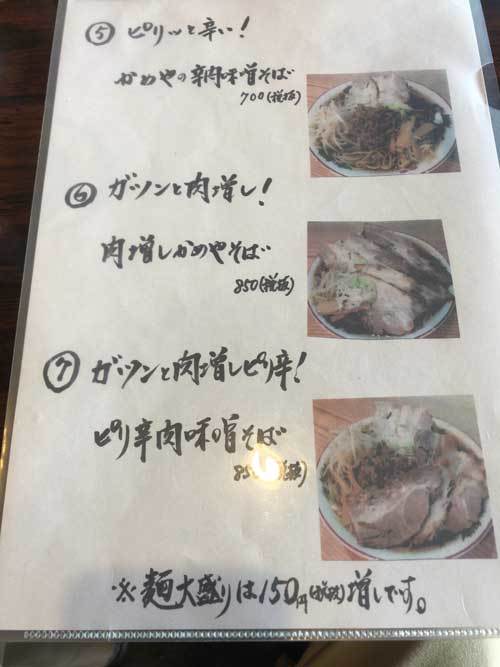 ⑤ ピリッと辛い!
かめやの辛肉味噌そば
700(税抜)
⑥ ガツンと肉増し!
肉増しかめやそば
850(税抜)
⑦ ガツンと肉増しピリ辛!
ピリ辛肉味噌そば
※麺大盛りは150円(税抜)増しです。